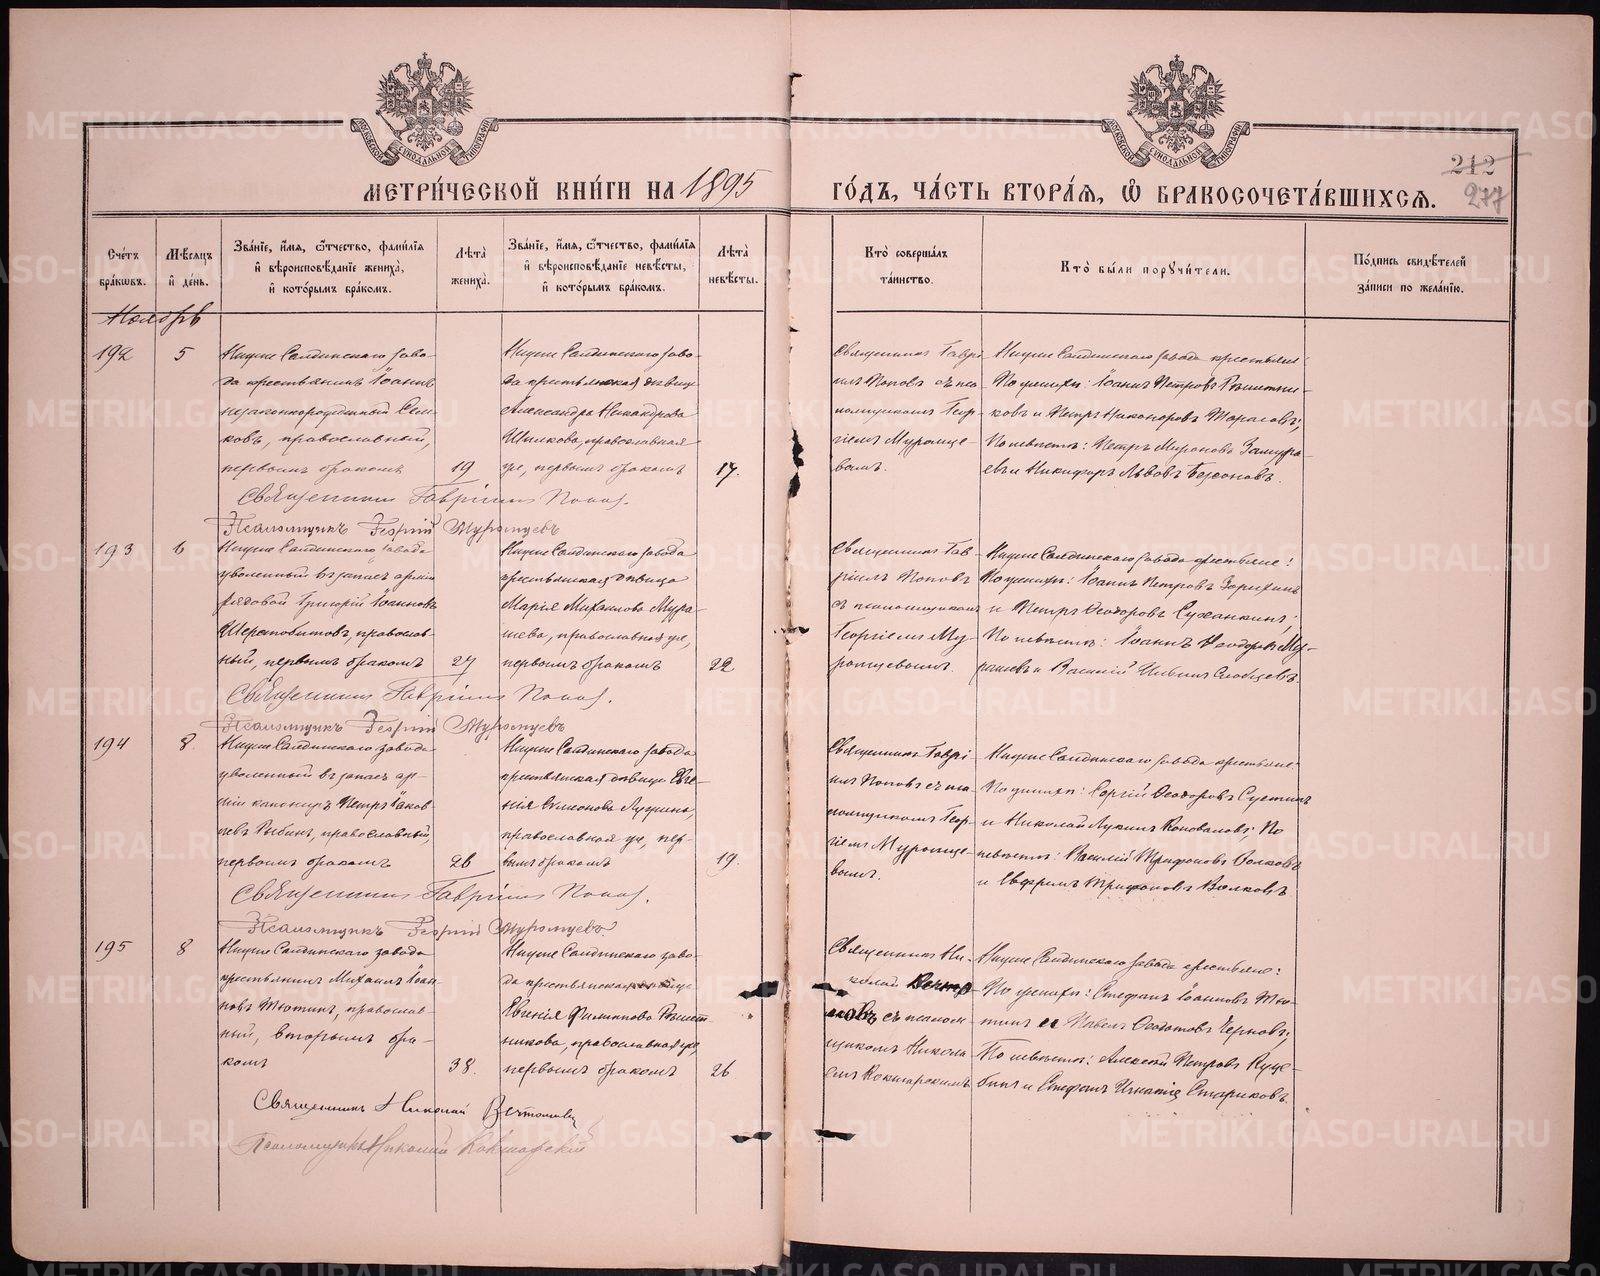 МЕТРИ́ЧЕСКОЙ КНИ́ГИ НА 1895
ГО́ДЪ, ЧА́СТЬ ВТОРА́Ѧ, Ѽ БРАКОСОЧЕТА́ВШИХСѦ.
212
277
Сче́тъ бра́кѡвъ.
Мѣ́сѧцъ и҆ де́нь.
Зва́нїе, и҆́мѧ, ѻ҆́тчество, фами́лїѧ и҆ вѣроисповѣ́данїе жениха̀, и҆ кото́рымъ бра́комъ.
Лѣ́та жениха̀.
Зва́нїе, и҆́мѧ, ѻ҆́тчество, фами́лїѧ и҆ вѣроисповѣ́данїе невѣ́сты, и҆ кото́рымъ бра́комъ.
Лѣ́та невѣ́сты.
Кто̀ соверша́лъ та́инство.
Кто̀ бы́ли порꙋчи́тели.
По́дпись свидѣ́телей за́писи по жела́нїю.
Ноябрь
192
5
Нижне Салдинскаго заво-
да крестьянинъ Іоаннъ
незаконнорожденный
ковъ, православный,
первымъ бракомъ
19
Нижне Салдинскаго заво-
да крестьянская девица
Александра Никандрова
Шилкова, православная
же, первымъ бракомъ
17.
Священникъ Гаврі-
илъ Поповъ съ пса-
ломщикомъ Геор-
гіемъ Муромце-
вымъ.
Нижне Салдинскаго завода крестьяне:
По женихѣ: Іоаннъ Петровъ Решетни-
ковъ и Петръ Никаноровъ Тарасовъ;
По невѣстѣ: Петръ Мироновъ Замура-
евъ и Никифоръ Львовъ Безсоновъ.
Священникъ Гавріилъ Попов.
Псаломщикъ Георгій Муромцевъ
193
6
Нижне Салдинскаго завода
уволенный въ запасъ арміи
рядовой Григорій Іоанновъ
Шерстобитовъ, православ-
ный, первымъ бракомъ
27
Нижне Салдинскаго завода
крестьянская девица
Марія Михаилова Мура-
шева, православная же,
первымъ бракомъ
22.
Священникъ Гав-
ріилъ Поповъ
съ псаломщикомъ
Георгіемъ Му-
ромцевымъ.
Нижне Салдинскаго завода крестьяне:
По женихѣ: Іоаннъ Петровъ Зорихинъ
и Петръ Ѳеодоровъ Суханкинъ;
По невѣстѣ: Іоаннъ Ѳеодоровъ Му-
рашевъ и Василій
Священникъ Гавріилъ Попов.
Псаломщикъ Георгій Муромцевъ
194
8.
Нижне Салдинскаго завода
уволенный въ запасъ ар-
міи канониръ Петръ Іаков-
левъ Рыбинъ, православный,
первымъ бракомъ
26
Нижне Салдинскаго завода
крестьянская девица Евге-
нія Симеонова Лузина,
православная же, пер-
вымъ бракомъ
19.
Священникъ Гаврі-
илъ Поповъ съ пса-
ломщикомъ Геор-
гіемъ Муромце-
вымъ.
Нижне Салдинскаго завода крестьяне:
По женихѣ: Сергій Ѳеодоровъ Сустинъ
и Николай Лукинъ Коноваловъ; По
невѣстѣ: Василій Трифоновъ Волковъ
и Евфремъ Трифоновъ Волковъ
Священникъ Гавріилъ Попов.
Псаломщикъ Георгій Муромцевъ
195
8
Нижне Салдинскаго завода
крестьянинъ Михаилъ Іоан-
новъ Тютинъ, православ-
ный, вторымъ бра-
комъ
38.
Нижне Салдинскаго заво-
да крестьянская девица
Евгенія Филиппова Решет-
никова, православная же,
первымъ бракомъ
26
Священникъ Ни-
колай
съ псалом-
щикомъ Никола-
емъ Кокшарскимъ
Нижне Салдинскаго завода крестьяне:
По женихѣ: Стефанъ Іоанновъ Тю-
тинъ и Павелъ Ѳедотовъ Черновъ;
По невѣстѣ: Алексѣй Петровъ Куде-
бинъ и Стефанъ Игнатіев Стариковъ.
Священникъ Николай
Псаломщикъ Николай Кокшарскій
METRIKI.GASO-URAL.RU